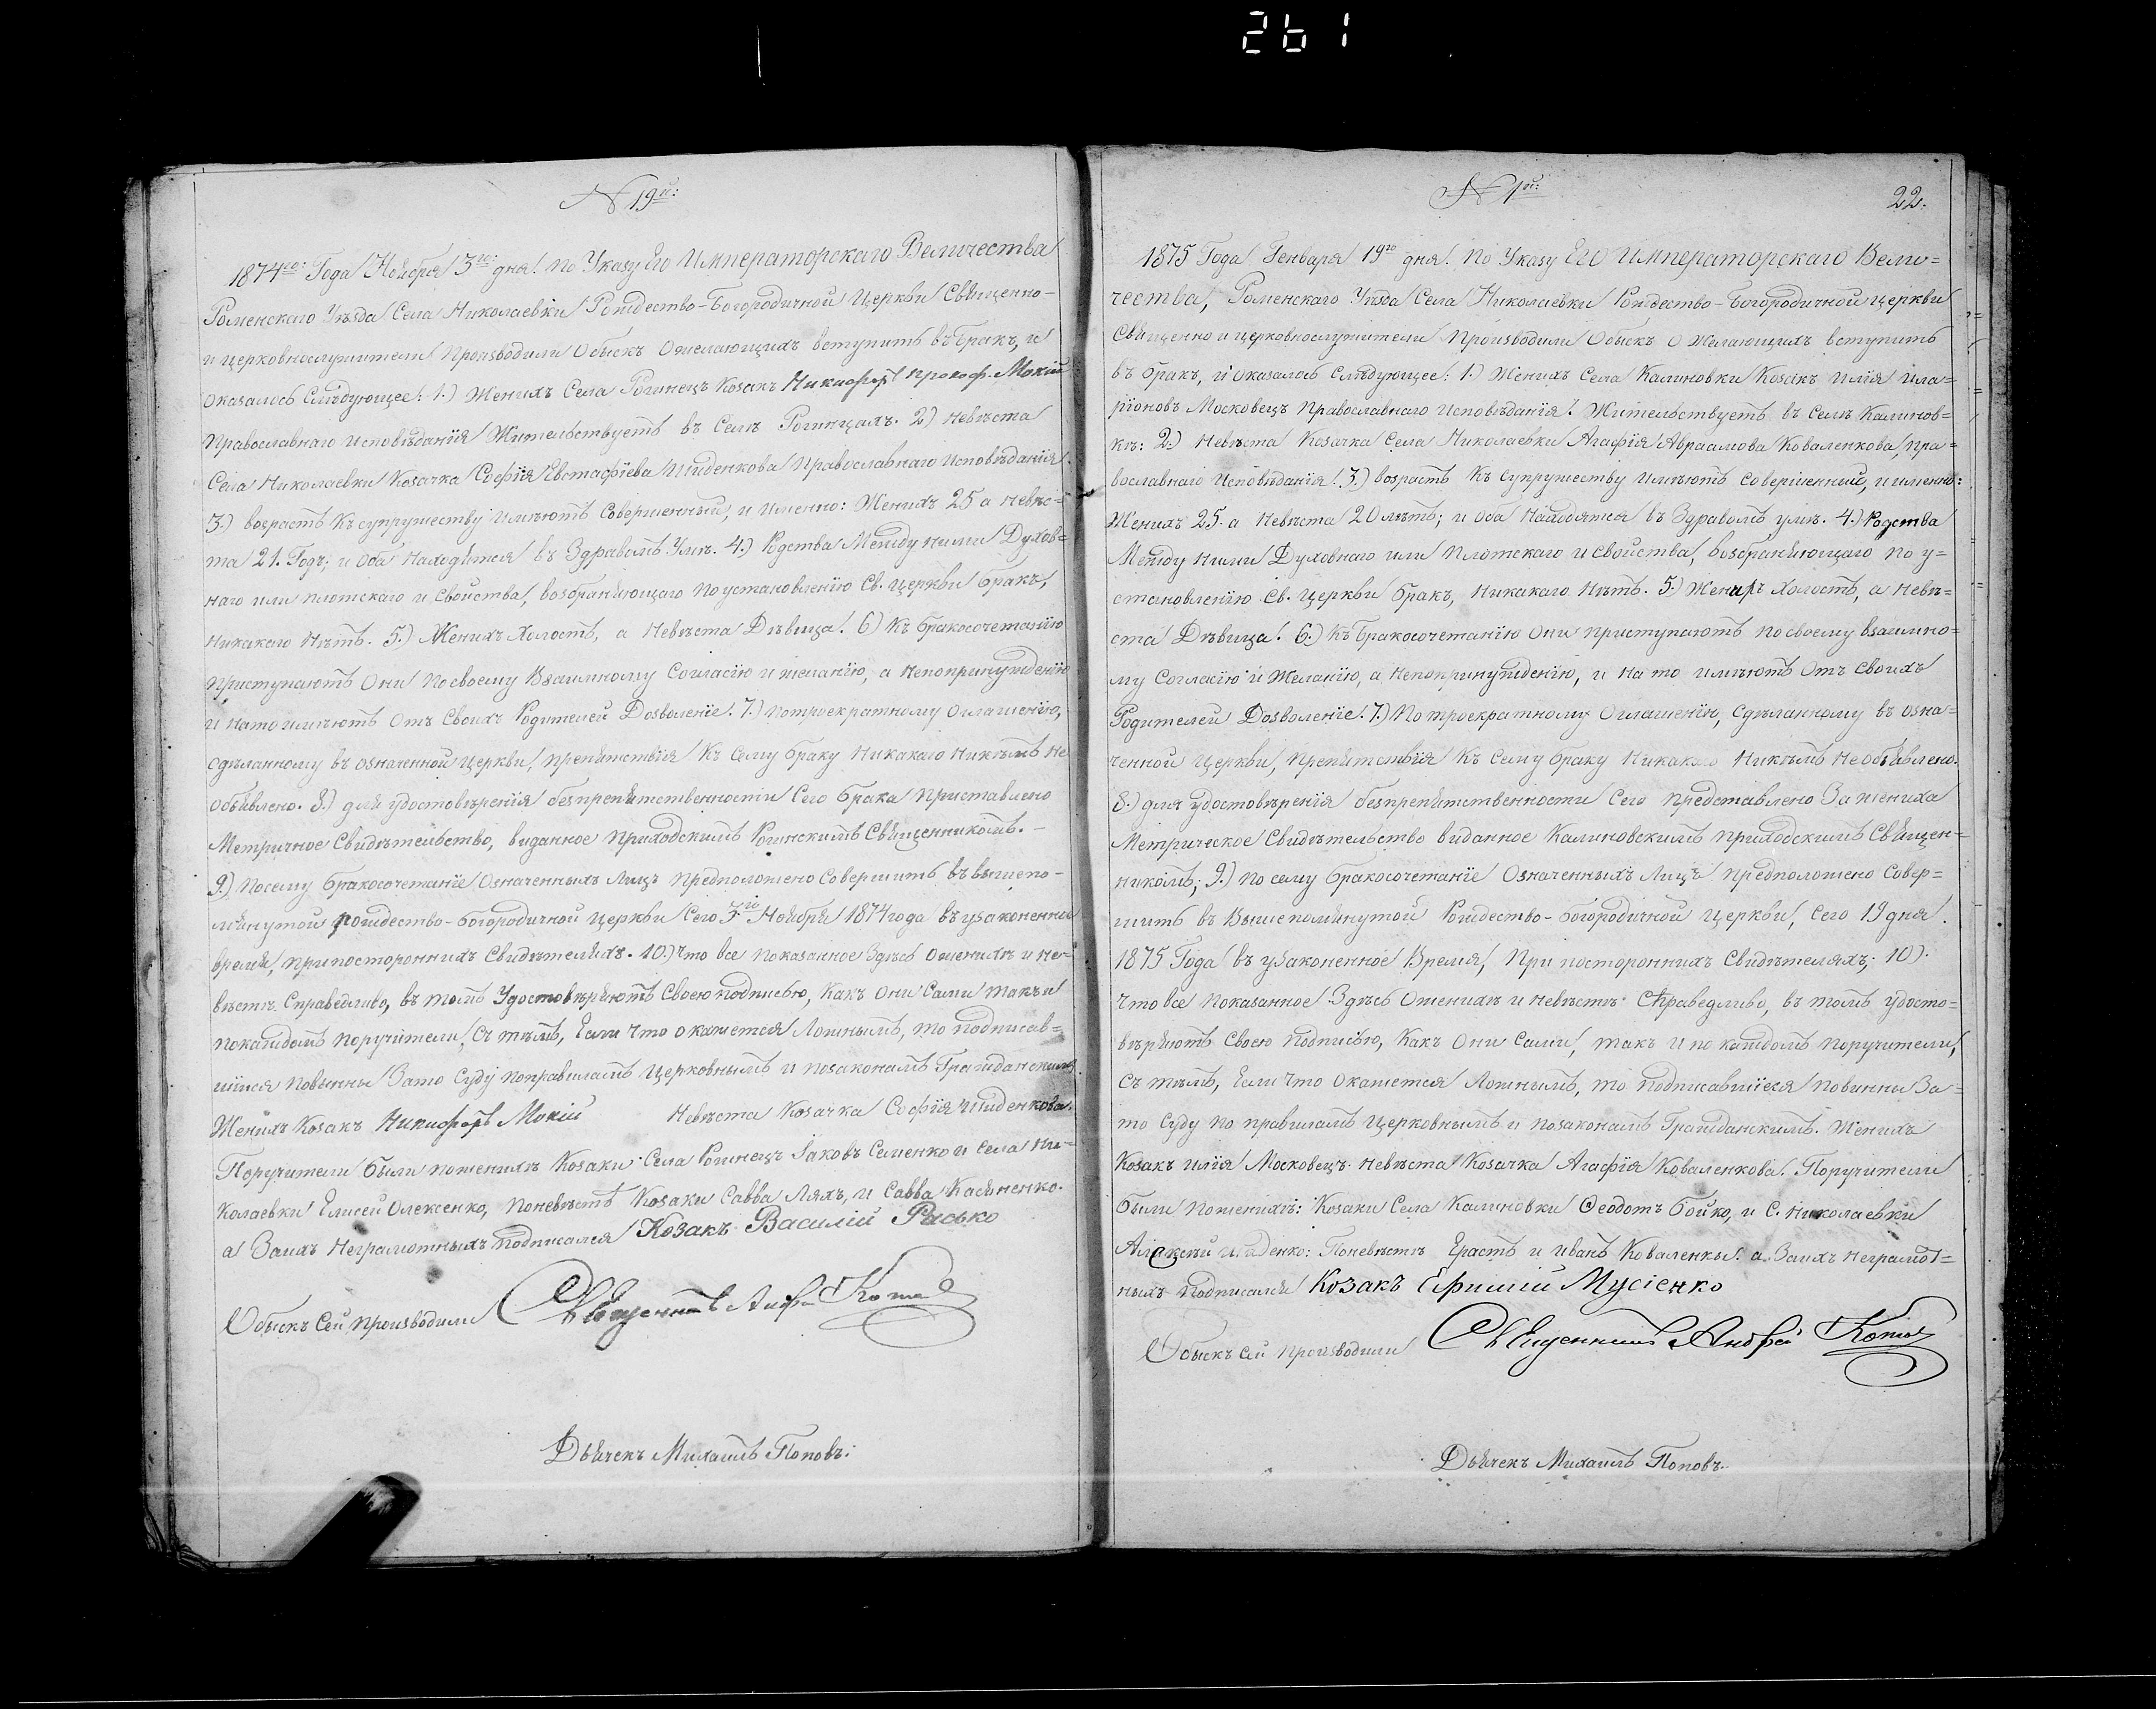 261
N 19й:
1874го: Года Ноября 3го: дня. По Указу Его Императорскаго Величества
Роменскаго Уѣзда Села Николаевки Рождество-Богородичной Церкви Священно-
и церковнослужители производили Обыскъ О желающихъ вступить въ бракъ, и
оказалось Слѣдующее: 1.) Женихъ Села Рогинецъ Козакъ Никифоръ Прокоф. Мокій
Православнаго исповѣданія Жительствуетъ въ Селѣ Рогинцахъ. 2) Невѣста
Села Николаевки Козачка Софія Евстафіева Шиденкова Православнаго исповѣданія.
3.) возрастъ къ супружеству имѣютъ Совершенный, и именно: Женихъ 25 а невѣс-
та 21. Годъ; и оба находятся въ Здравомъ Умѣ. 4.) Родства Между ними Духов-
наго или плотскаго и Свойства, возбраняющаго по установленію Св. Церкви бракъ,
никакаго Нѣтъ. 5.) Женихъ Холостъ, а Невѣста Дѣвица. 6) Къ бракосочетанію
приступаютъ Они по своему Взаимному Согласію и желанію, а непопринужденію
и на то имѣютъ Отъ Своихъ Родителей Дозволеніе. 7.) По троекратному Оглашенію,
сдѣланному въ означенной Церкви, препятствія Къ Сему браку Никакаго Никѣмъ Не
объявлено. 8.) для удостовѣренія безпрепятственности Сего брака Приставлено
Метричное Свидѣтельство, виданное Приходскимъ Рогинскимъ Священникомъ. -
9.) Посему бракосочетаніе Означенныхъ Лицъ предположено Совершить въ вышепо-
мянутой рождество-богородичной Церкви Сего 3го Ноября 1874 года въ узаконенно
время, при постороннихъ Свидѣтеляхъ. 10.) что все показанное Здѣсь О женихѣ и не-
вѣстѣ Справедливо, въ томъ Удостовѣряютъ Своею подписью, какъ Они Сами такъ и
по каждомъ поручители, Съ тѣмъ, Если что окажется Ложнымъ, то подписав-
шіися повынны За то Суду по правиламъ Церковнымъ и по законамъ Гражданскимъ
Женихъ Козакъ Никифоръ Мокій Невѣста Козачка Софія Шиденкова.
Поручители были по женихѣ Козаки Села Рогинецъ Іаковъ Семенко и Села Ни-
колаевки Елисей Олексенко, по невѣстѣ Козаки Савва Ляхъ, и Савва Касяненко.
а За ихъ Неграмотныхъ подписался Козакъ Василій Расько
Обыскъ Сей производили Священникъ
Дьячекъ Михаилъ Поповъ:
N 1й: 22.
1875 Года Генваря 19го дня. По Указу Его Императорскаго Вели=
чества, Роменскаго Уѣзда Села Николаевки Рождество-Богородичной церкви
Священно и церковнослужители Производили Обыскъ О желающихъ вступить
въ бракъ, и оказалось Слѣдующее: 1.) Женихъ Села Калиновки Козакъ Илія Ила=
ріоновъ Московецъ Православнаго исповѣданія. Жительствуетъ въ Селѣ Калинов=
кѣ: 2.) Невѣста Козачка Села Николаевки Агафія Авраамова Коваленкова, Пра=
вославнаго исповѣданія. 3.) возрастъ Къ Супружеству имѣютъ Совершенный, и именно:
Женихъ 25. а Невѣста 20 лѣтъ; и Оба Находятся въ Здравомъ умѣ. 4.) Родства
Между Ними Духовнаго или плотскаго и Свойства, возбраняющаго по у=
становленію Св. Церкви бракъ, Никакаго Нѣтъ. 5.) Женихъ Холостъ, а Невѣ=
ста Дѣвица. 6.) Къ Бракосочетанію Они приступаютъ по своему взаимно=
му Согласію и Желанію, а непопринужденію, и на то имѣютъ Отъ Своихъ
Родителей Дозволеніе. 7.) По троекратному Оглашенію, Сдѣланному въ озна=
ченной Церкви, препятствія Къ Сему браку Никакаго Никѣмъ Не объявлено.
8.) для удостовѣренія безпрепятственности Сего представлено За жениха
Метрическое Свидѣтельство виданное Калиновскимъ приходскимъ Священ=
никомъ; 9.) по сему бракосочетаніе Означенныхъ Лицъ предположено Совер=
шить въ Вышепомянутой Рождество-богородичной Церкви, Сего 19 дня.
1875 Года въ узаконенное Время, При постороннихъ Свидѣтеляхъ; 10).
Что все показанное Здѣсь О женихѣ и невѣстѣ Справедливо, въ томъ удосто=
вѣряютъ Своею подписью, Какъ Они Сами, такъ и по каждомъ поручители,
Съ тѣмъ, Если что окажется Ложнымъ, то подписавшіеся повинны За=
то Суду по правиламъ Церковнымъ и по законамъ Гражданскимъ. Женихъ
Козакъ Илія Московецъ. Невѣста Козачка Агафія Коваленкова. Поручители
были По женихѣ: Козаки Села Калиновки Ѳеодотъ Бойко, и С. Николаевки
Алексѣй Шиденко: По невѣстѣ Ерастъ и иванъ Коваленкы. а За ихъ неграмот=
ныхъ Подписался Козакъ Ефимій Мусіенко
Обыскъ Сей производили Священникъ Андрей
Дьячекъ Михаилъ Поповъ.